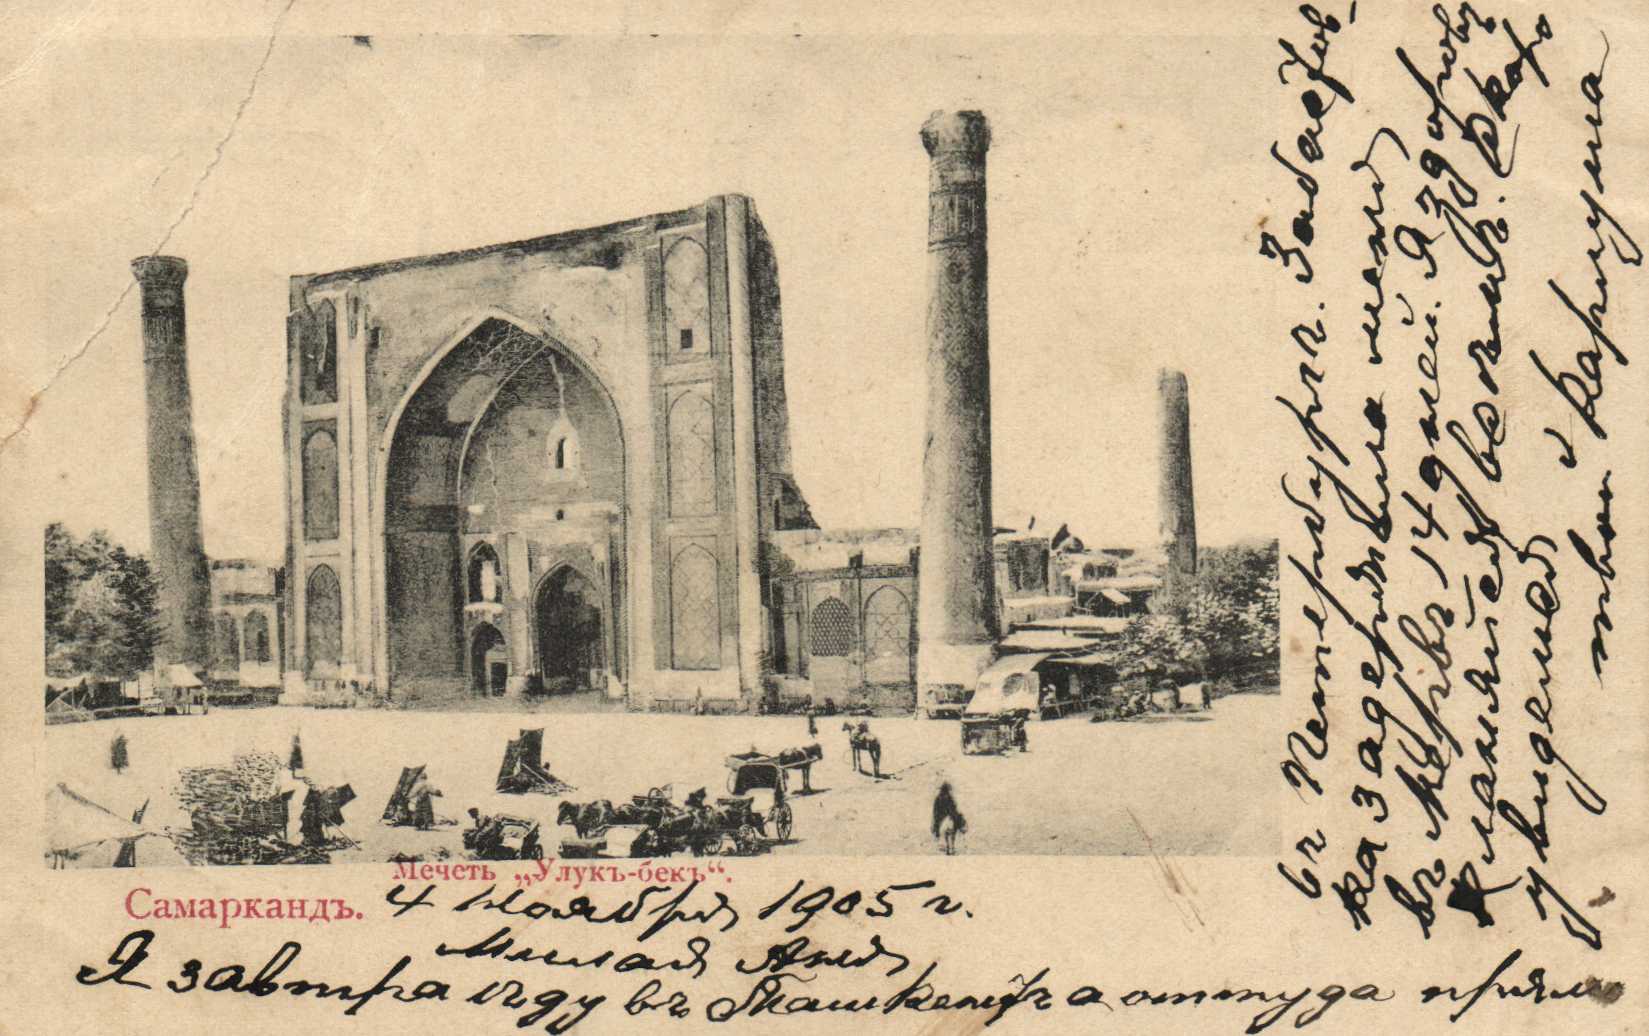 Мечеть „Улукъ-бекъ“.
Самаркандъ. 4 ноября 1905 г.
Милая Аня
Я завтра ѣду въ Ташкентъ а оттуда прямо
въ Петербургъ. Забастов-
ка задержала меня
въ Мервѣ 14 дней. Я здоровъ
Кланяйся всѣмъ. Скоро
увидимся
твой Каригуна